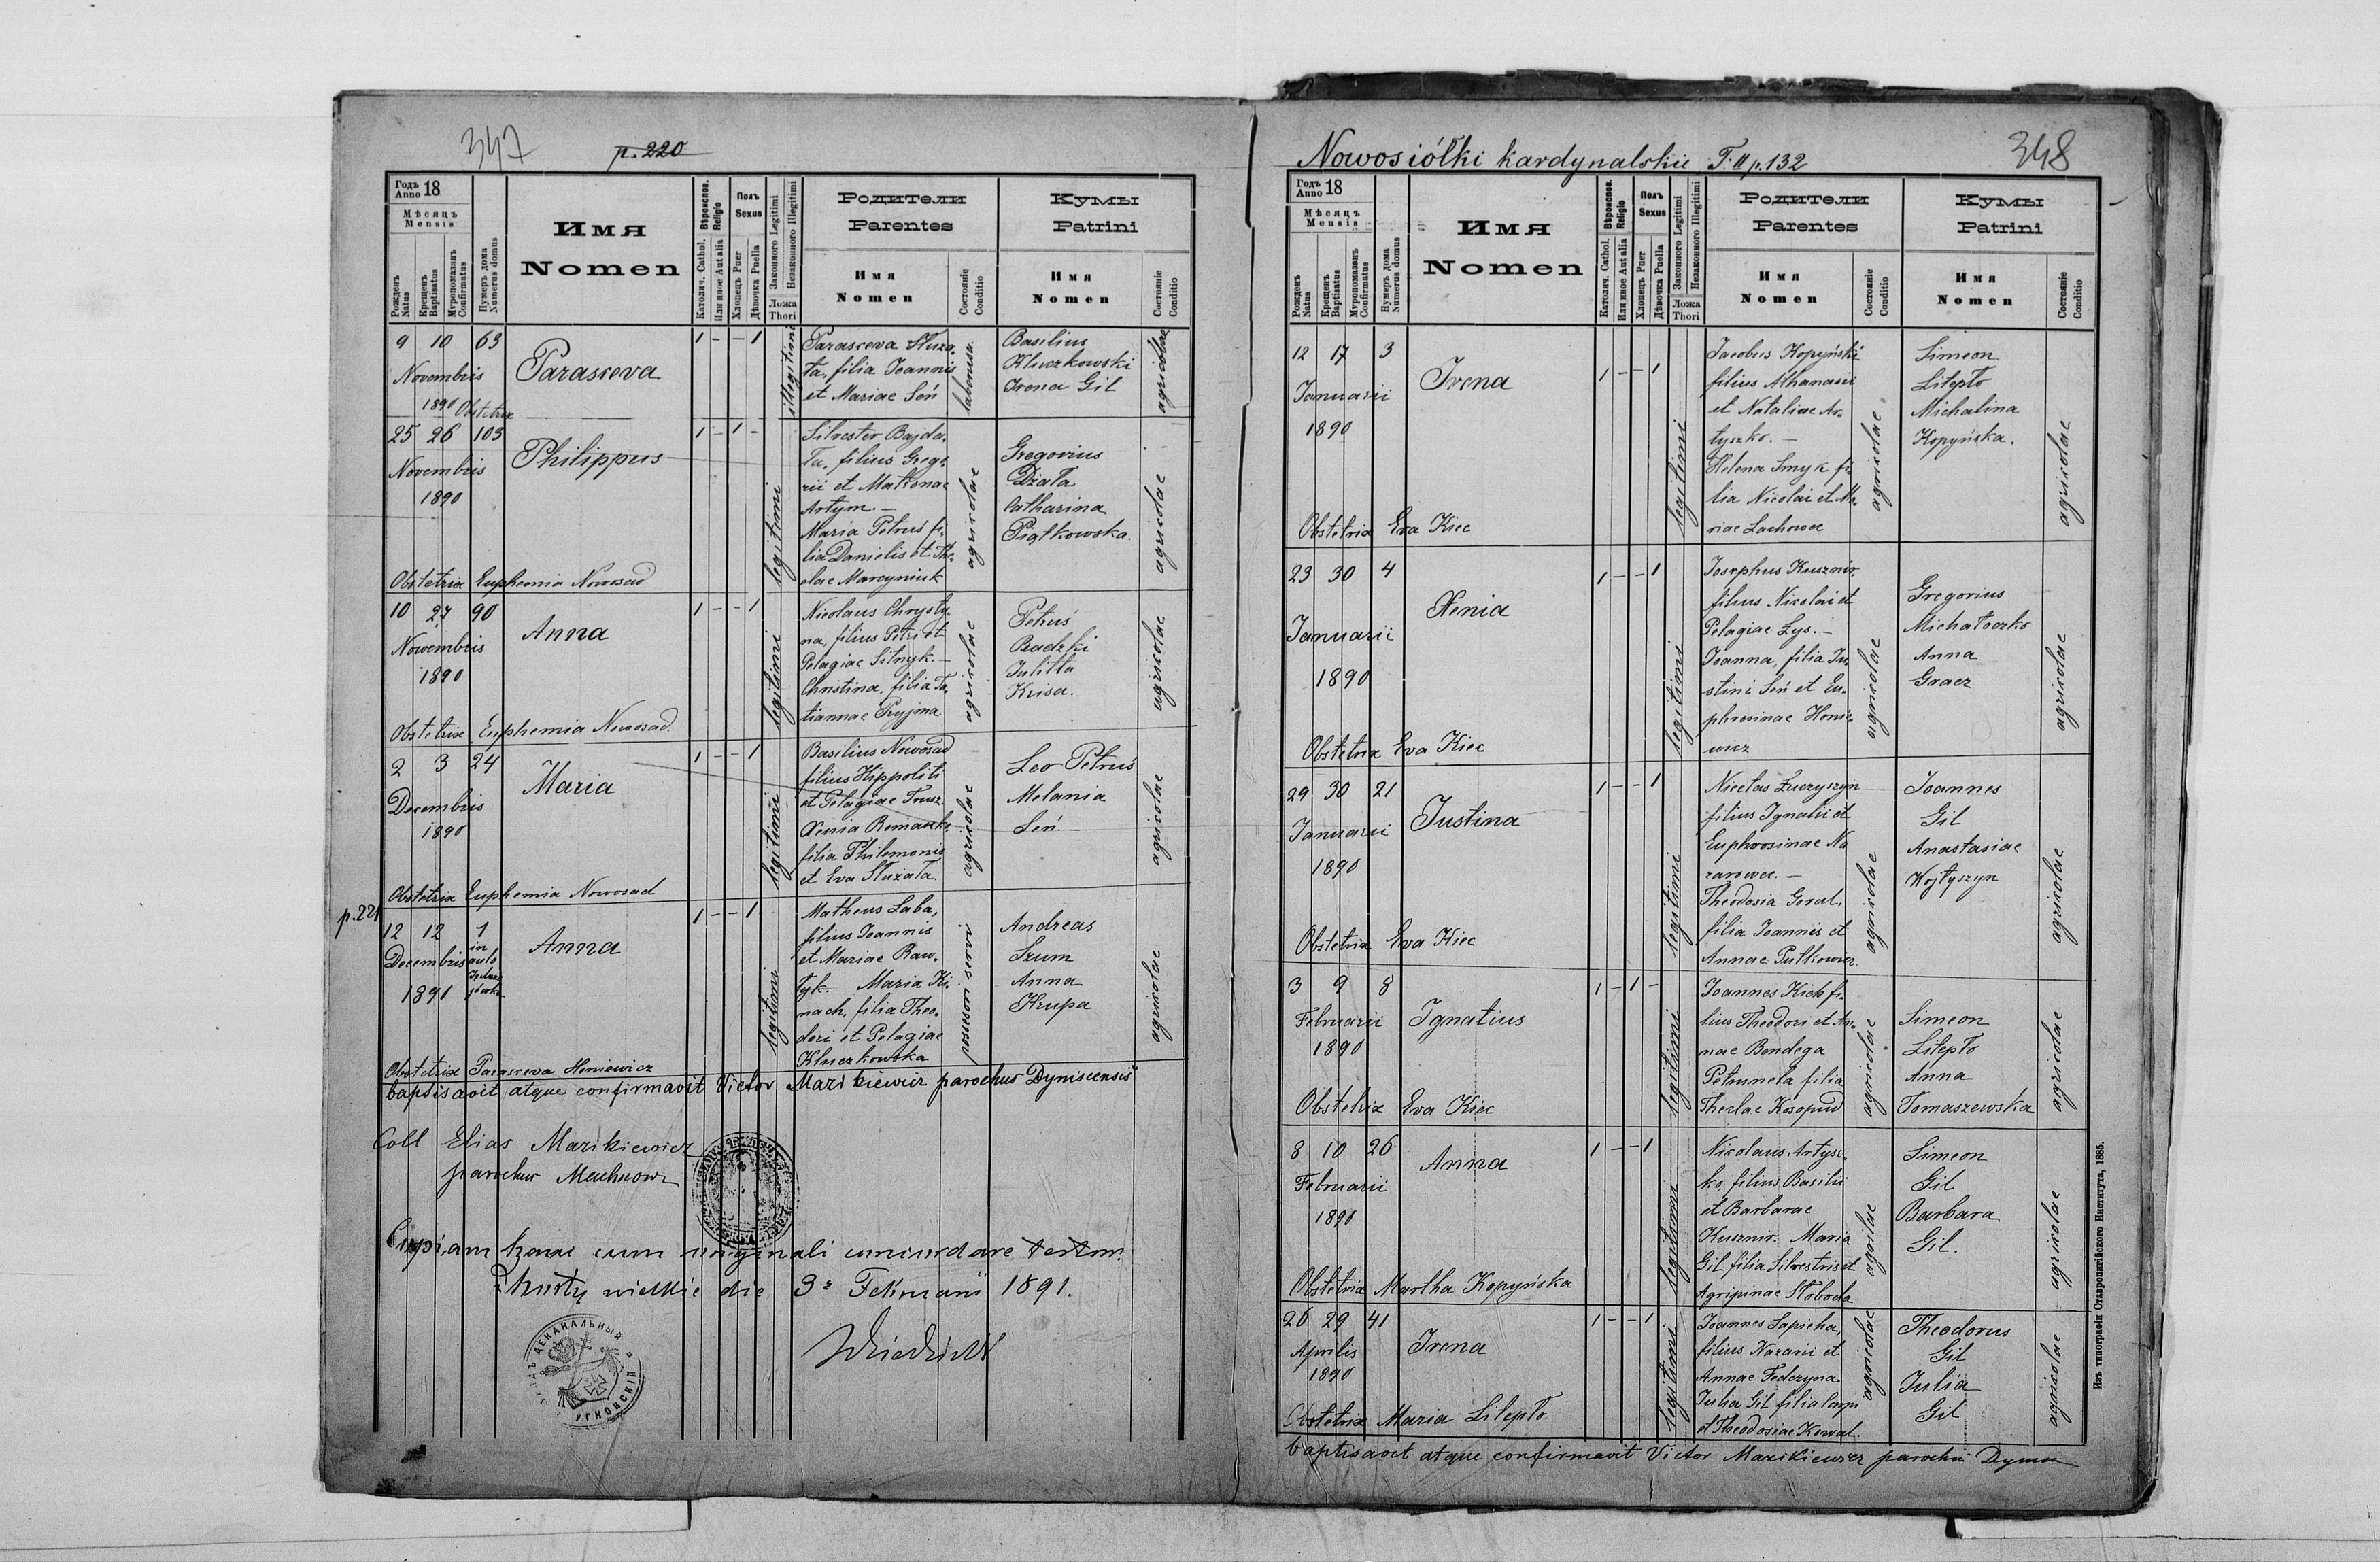 347
p. 220
Годъ 18
Anno
Мѣсяцъ
Mensis
Рожденъ
Natus
Крещенъ
Baptisatus
Мѵропомазанъ
Confirmatus
Нумеръ дома
Numerus domus
Имя
Nomen
Вѣроиспов.
Religio
Католич. Cathol.
Или иное Aut alia
Полъ
Sexus
Хлопецъ Puer
Дѣвочка Puella
Законного Legitimi
Незаконного Illegitimi
Ложа
Thori
Родители
Parentes
Имя
Nomen
Состояніе
Conditio
Кумы
Patrini
Имя
Nomen
Состояніе
Conditio
9 10 63
Novembris
1890 Obstetrix
Parasceva
1 - - 1
illegitimi
Parasceva
ta, filia Joannis
et Mariae Seń
Basilius
Kluczkowski
Irena Gil
agricolae
25 26 103
Novembris
1890
Philippus
1 - 1 -
legitimi
Silvester Bajda
filius Grego
rii et Matronae
Artym. -
Maria Petruś fi
lia Danielis et The
clae Marcyniuk
agricolae
Gregorius
Działa
Catharina
Piątkowska.
agricolae
Obstetrix Euphemia Nowosad
10 27 90
Novembris
1890
Anna
1 - - 1
legitimi
Nicolaus Chrysty
na, filius Petri et
Pelagiae Sitnyk. -
Christina, filia Ta
tiannae Pryjma
agricolae
Petruś
Badzki
Julitta
Krisa.
agricolae
Obstetrix Euphemia Nowosad.
2 3 24
Decembris
1890
Maria
1 - - 1
legitimi
Basilius Nowosad
filius Hippoliti
et Pelagiae Trusz.
Xenia Romaszko
filia Philemonis
et Eva Służała.
agricolae
Leo Petruś
Melania
Seń. -
agricolae
Obstetrix Euphemia Nowosad
p. 221
12 12 1
in
Decembris
1891
Anna
1 - - 1
legitimi
Matheus Laba,
filius Joannis
et Mariae Raw
tyk. Maria Ki
nach, filia Theo
dori et Pelagiae
Kluczkowska
servi
Andreas
Szum
Anna
Krupa
agricolae
Obstetrix Parasceva Honiewicz
baptisavit atque confirmavit Victor Marikiewicz parochus Dyniscensis
Coll Elias Marikiewicz
parochus
Copiam hanc cum originali concordare testor.
wielkie die 3 Februarii 1891.
Nowosiółki kardynalskie T. II p. 132
348
Годъ 18
Anno
Мѣсяцъ
Mensis
Рожденъ
Natus
Крещенъ
Baptisatus
Мѵропомазанъ
Confirmatus
Нумеръ дома
Numerus domus
Имя
Nomen
Вѣроиспов.
Religio
Католич. Cathol.
Или иное Aut alia
Полъ
Sexus
Хлопецъ Puer
Дѣвочка Puella
Законного Legitimi
Незаконного Illegitimi
Ложа
Thori
Родители
Parentes
Имя
Nomen
Состояніе
Conditio
Кумы
Patrini
Имя
Nomen
Состояніе
Conditio
12 17 3
Januarii
1890
Irena
1 - - 1
legitimi
Jacobus Kopyński
filius Athanasii
et Nataliae Ar
tyszko. -
Helena Smyk fi
lia Nicolai et Ma
riae Lachowec
agricolae
Simeon
Litepło
Michalina
Kopyńska.
agricolae
Obstetrix Eva Kiec
23 30 4
Januarii
1890
Xenia
1 - - 1
legitimi
Josephus Kusznir
filius Nicolai et
Pelagiae Lys. -
Joanna, filia Ju
stini Seń et Eu
phrosinae Honie
wicz
agricolae
Gregorius
Michałoczko
Anna
Gracz
agricolae
Obstetrix Eva Kiec
29 30 21
Januarii
1890
Justina
1 - - 1
legitimi
Nicetas Łuczyszyn
filius Ignatii et
Euphrosinae Na
zarowec. -
Theodosia Goral,
filia Joannis et
Annae Putkowicz.
agricolae
Joannes
Gil
Anastasiae
Wojtyszyn
agricolae
Obstetrix Eva Kiec
3 9 8
Februarii
1890
Ignatius
1 - 1 -
legitimi
Joannes Kieb fi
lius Theodori et An
nae Bendega
Petrunela filia
Theclae Kosopud
agricolae
Simeon
Litepło
Anna
Tomaszewska
agricolae
Obstetrix Eva Kiec
8 10 26
Februarii
1890
Anna
1 - - 1
legitimi
Nicolaus Artysz
ko, filius Basilii
et Barbarae
Kusznir. Maria
Gil filia Silvestris et
Agripinae Słoboda
agricolae
Simeon
Gil
Barbara
Gil.
agricolae
Obstetrix Martha Kopyńska
26 29 41
Aprilis
1890
Irena
1 - - 1
legitimi
Joannes Sapieha,
filius Nazarii et
Annae Fedczyna.
Julia Gil filia
et Theodosiae Kowal.
agricolae
Theodorus
Gil
Julia
Gil
agricolae
Obstetrix Maria Litepło
baptisavit atque confirmavit Victor Marikiewicz
Изъ типографіи Ставропигійского Института, 1885.